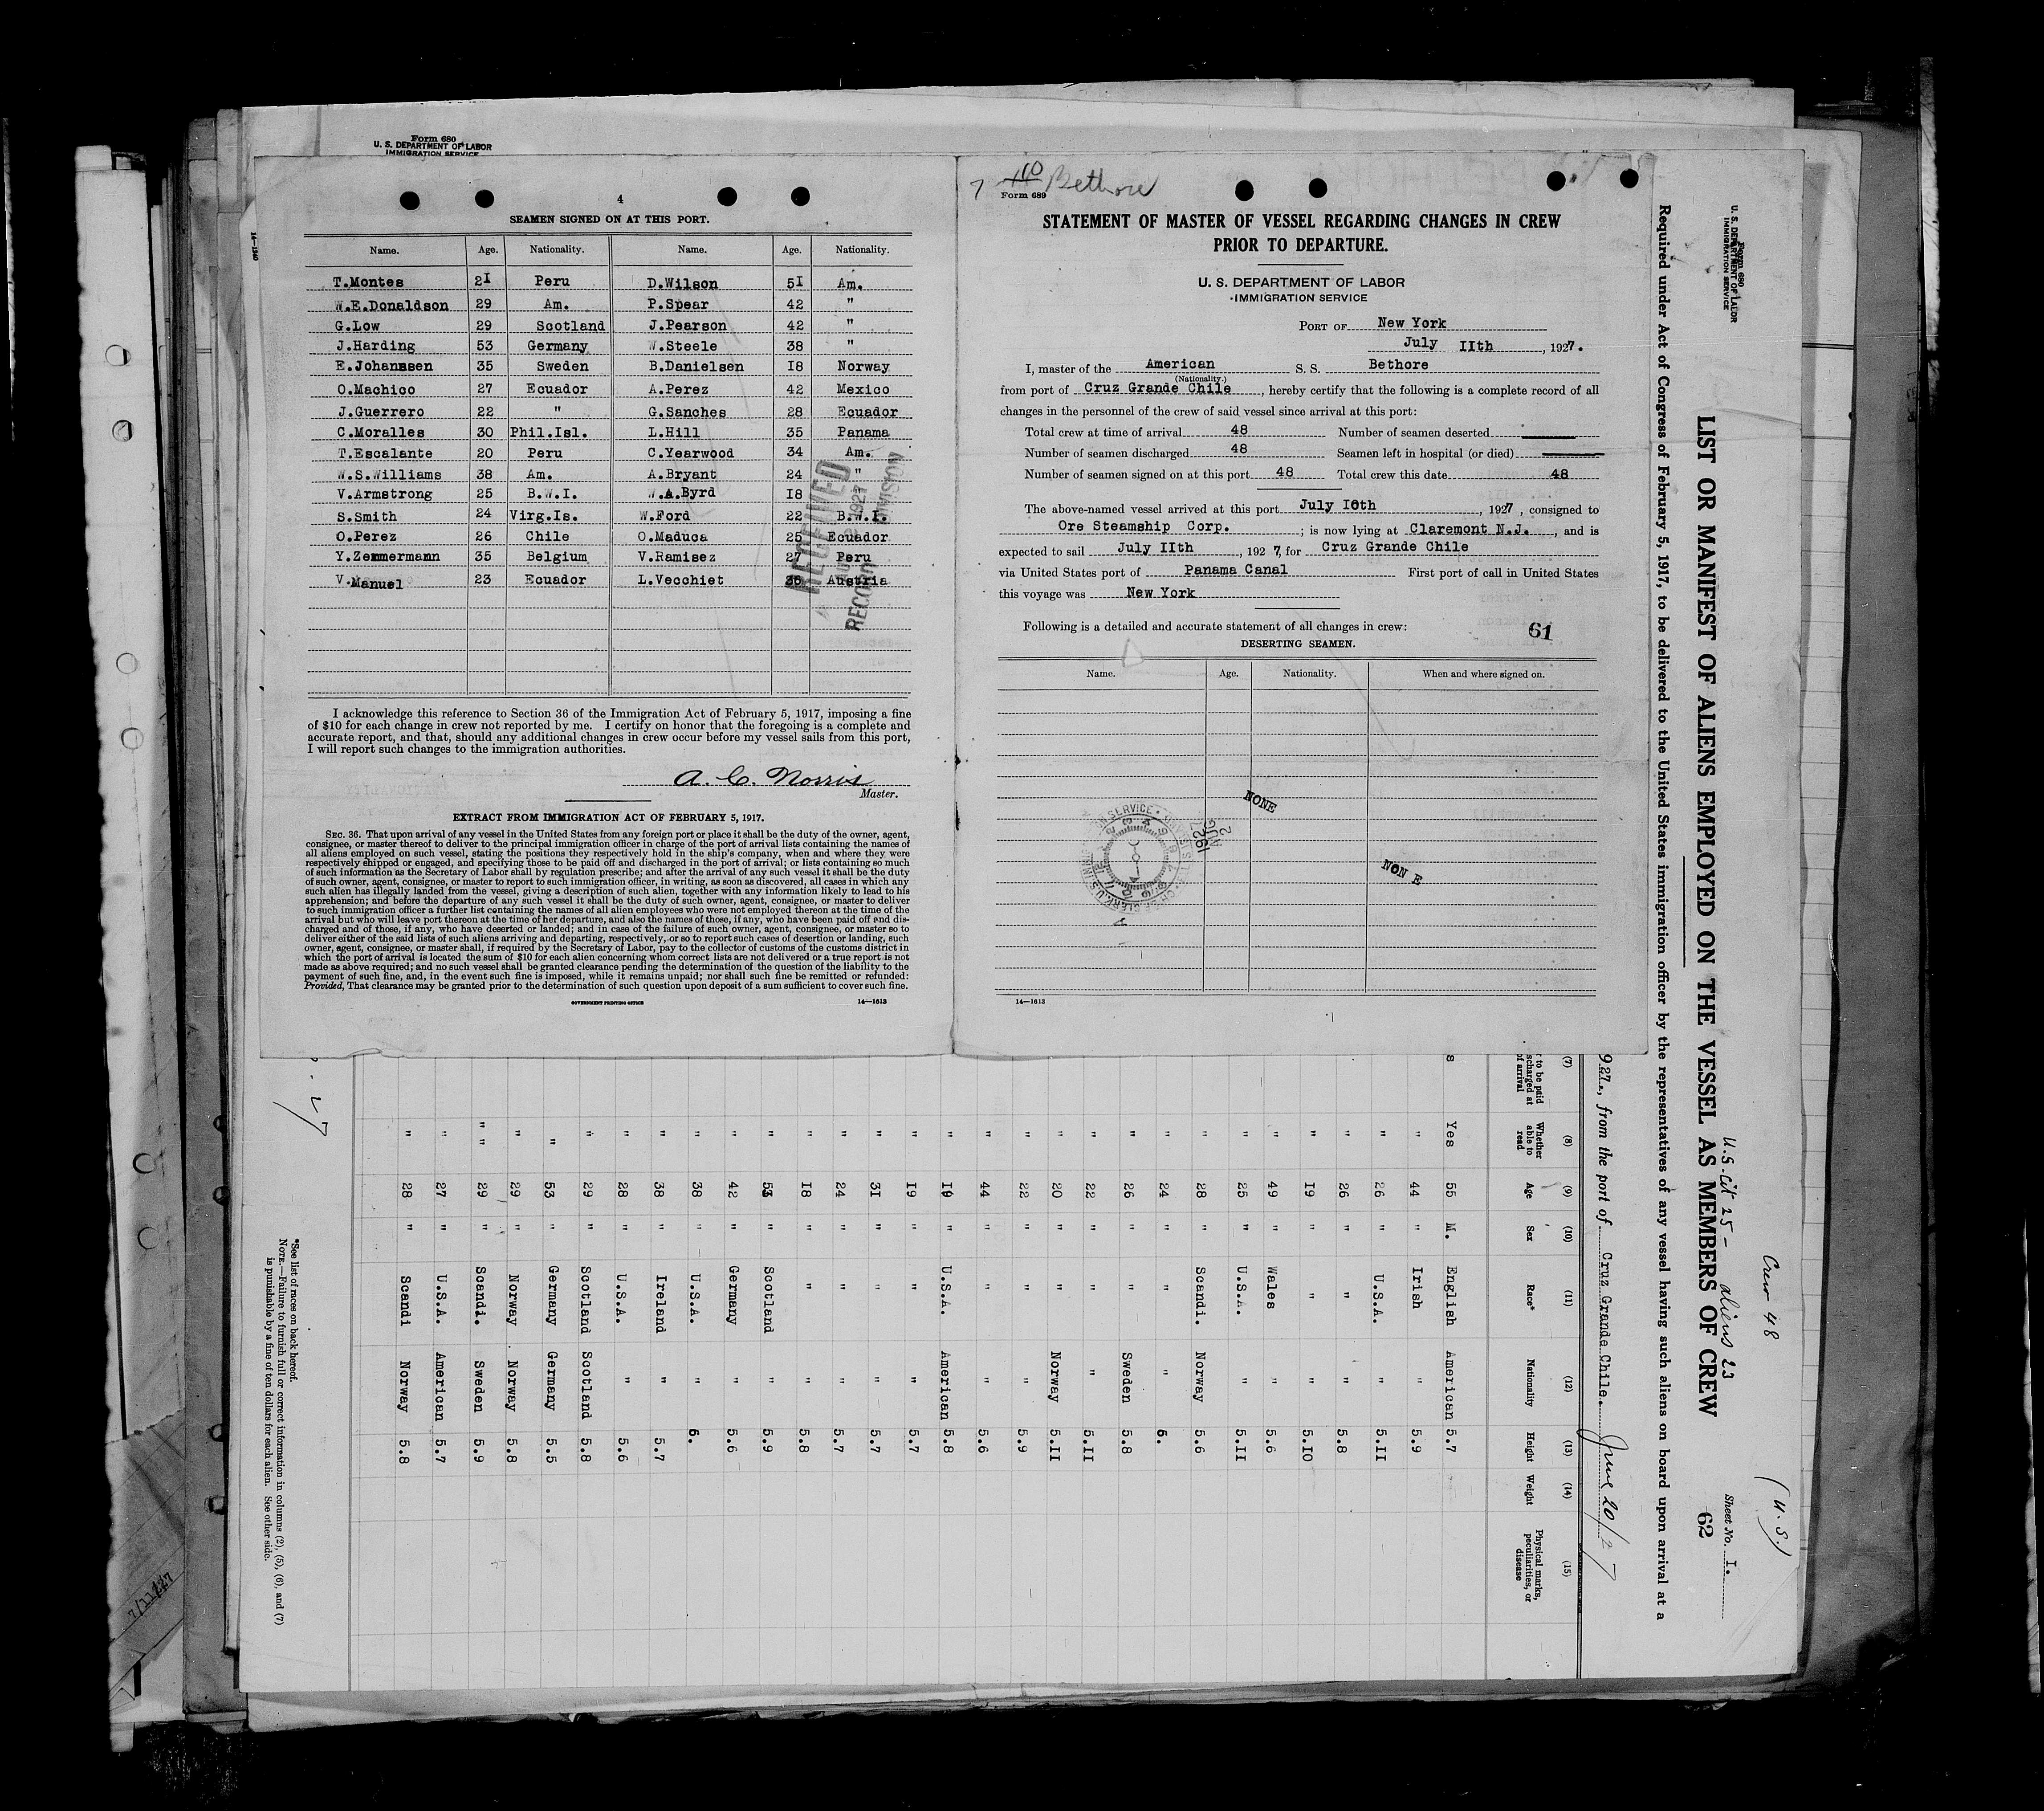 Form 680
U. S. DEPARTMENT OF LABOR
IMMIGRATION SERVICE
14—1240
4
SEAMEN SIGNED ON AT THIS PORT.
Name. Age. Nationality. Name. Age. Nationality.
T.Montes 2I Peru D.Wilson 5I Am.
W.E.Donaldson 29 Am. P.Spear 42 "
G.Low 29 Scotland J.Pearson 42 "
J.Harding 53 Germany W.Steele 38 "
E.Johannsen 35 Sweden B.Danielsen I8 Norway
O.Machico 27 Ecuador A.Perez 42 Mexico
J.Guerrero 22 " G.Sanches 28 Ecuador
C.Moralles 30 Phil.Isl. L.Hill 35 Panama
T.Escalante 20 Peru C.Yearwood 34 Am.
W.S.Williams 38 Am. A.Bryant 24 "
V.Armstrong 25 B.W.I. W.A.Byrd I8
S.Smith 24 Virg.Is. W.Ford 22 B.W.I.
O.Perez 26 Chile O.Maduca 25 Ecuador
Y.Zemmermann 35 Belgium V.Ramisez 27 Peru
V.Manuel 23 Ecuador L.Vecchiet 36 Austria
RECEIVED
1927
RECORD DIVISION
I acknowledge this reference to Section 36 of the Immigration Act of February 5, 1917, imposing a fine
of $10 for each change in crew not reported by me. I certify on honor that the foregoing is a complete and
accurate report, and that, should any additional changes in crew occur before my vessel sails from this port,
I will report such changes to the immigration authorities.
A. C. Norris
Master.
EXTRACT FROM IMMIGRATION ACT OF FEBRUARY 5, 1917.
SEC. 36. That upon arrival of any vessel in the United States from any foreign port or place it shall be the duty of the owner, agent,
consignee, or master thereof to deliver to the principal immigration officer in charge of the port of arrival lists containing the names of
all aliens employed on such vessel, stating the positions they respectively hold in the ship's company, when and where they were
respectively shipped or engaged, and specifying those to be paid off and discharged in the port of arrival; or lists containing so much
of such information as the Secretary of Labor shall by regulation prescribe; and after the arrival of any such vessel it shall be the duty
of such owner, agent, consignee, or master to report to such immigration officer, in writing, as soon as discovered, all cases in which any
such alien has illegally landed from the vessel, giving a description of such alien, together with any information likely to lead to his
apprehension; and before the departure of any such vessel it shall be the duty of such owner, agent, consignee, or master to deliver
to such immigration officer a further list containing the names of all alien employees who were not employed thereon at the time of the
arrival but who will leave port thereon at the time of her departure, and also the names of those, if any, who have been paid off and dis-
charged and of those, if any, who have deserted or landed; and in case of the failure of such owner, agent, consignee, or master so to
deliver either of the said lists of such aliens arriving and departing, respectively, or so to report such cases of desertion or landing, such
owner, agent, consignee, or master shall, if required by the Secretary of Labor, pay to the collector of customs of the customs district in
which the port of arrival is located the sum of $10 for each alien concerning whom correct lists are not delivered or a true report is not
made as above required; and no such vessel shall be granted clearance pending the determination of the question of the liability to the
payment of such fine, and, in the event such fine is imposed, while it remains unpaid; nor shall such fine be remitted or refunded:
Provided, That clearance may be granted prior to the determination of such question upon deposit of a sum sufficient to cover such fine.
GOVERNMENT PRINTING OFFICE 14—1613
7 Bethore
Form 689
STATEMENT OF MASTER OF VESSEL REGARDING CHANGES IN CREW
PRIOR TO DEPARTURE.
U. S. DEPARTMENT OF LABOR
IMMIGRATION SERVICE
PORT OF New York
July IIth, 1927.
I, master of the American S. S. Bethore
(Nationality.)
from port of Cruz Grande Chile, hereby certify that the following is a complete record of all
changes in the personnel of the crew of said vessel since arrival at this port:
Total crew at time of arrival 48 Number of seamen deserted
Number of seamen discharged 48 Seamen left in hospital (or died)
Number of seamen signed on at this port 48 Total crew this date 48
The above-named vessel arrived at this port July I0th, 1927, consigned to
Ore Steamship Corp.; is now lying at Claremont N.J., and is
expected to sail July IIth, 1927, for Cruz Grande Chile
via United States port of Panama Canal First port of call in United States
this voyage was New York
Following is a detailed and accurate statement of all changes in crew:
61
DESERTING SEAMEN.
Name. Age. Nationality. When and where signed on.
NONE
1927 AUG 2
NON E
14—1613
Form 680
U. S. DEPARTMENT OF LABOR
IMMIGRATION SERVICE
Crew 48 (U.S.)
U.S. Cit 25 — aliens 23
Sheet No. I.
LIST OR MANIFEST OF ALIENS EMPLOYED ON THE VESSEL AS MEMBERS OF CREW
62
Required under Act of Congress of February 5, 1917, to be delivered to the United States immigration officer by the representatives of any vessel having such aliens on board upon arrival at a
927., from the port of Cruz Grande Chile. June 20/27
(7) (8) (9) (10) (11) (12) (13) (14) (15)
to be paid
scharged at
of arrival
Whether able to read Age Sex Race* Nationality Height Weight Physical marks, peculiarities, or disease
s Yes 55 M. English American 5.7
" 44 " Irish " 5.9
" 26 " U.S.A. " 5.II
" 26 " " " 5.8
" I9 " " " 5.I0
" 49 " Wales " 5.6
" 25 " U.S.A. " 5.II
" 28 " Scandi. Norway 5.6
" 24 " " " 6.
" 26 " " Sweden 5.8
" 22 " " " 5.II
" 20 " " Norway 5.II
" 22 " " " 5.9
" 44 " " " 5.6
" I9 " U.S.A. American 5.8
" I9 " " " 5.7
" 3I " " " 5.7
" 24 " " " 5.7
" I8 " " " 5.8
" 53 " Scotland " 5.9
" 42 " Germany " 5.6
" 38 " U.S.A. " 6.
" 38 " Ireland " 5.7
" 28 " U.S.A. " 5.6
" 29 " Scotland Scotland 5.8
" 53 " Germany Germany 5.5
" 29 " Norway Norway 5.8
" " 29 " Scandi. Sweden 5.9
" 27 " U.S.A. American 5.7
" 28 " Scandi Norway 5.8
*See list of races on back hereof.
NOTE.—Failure to furnish full or correct information in columns (2), (5), (6), and (7)
is punishable by a fine of ten dollars for each alien. See other side.
7/11/27